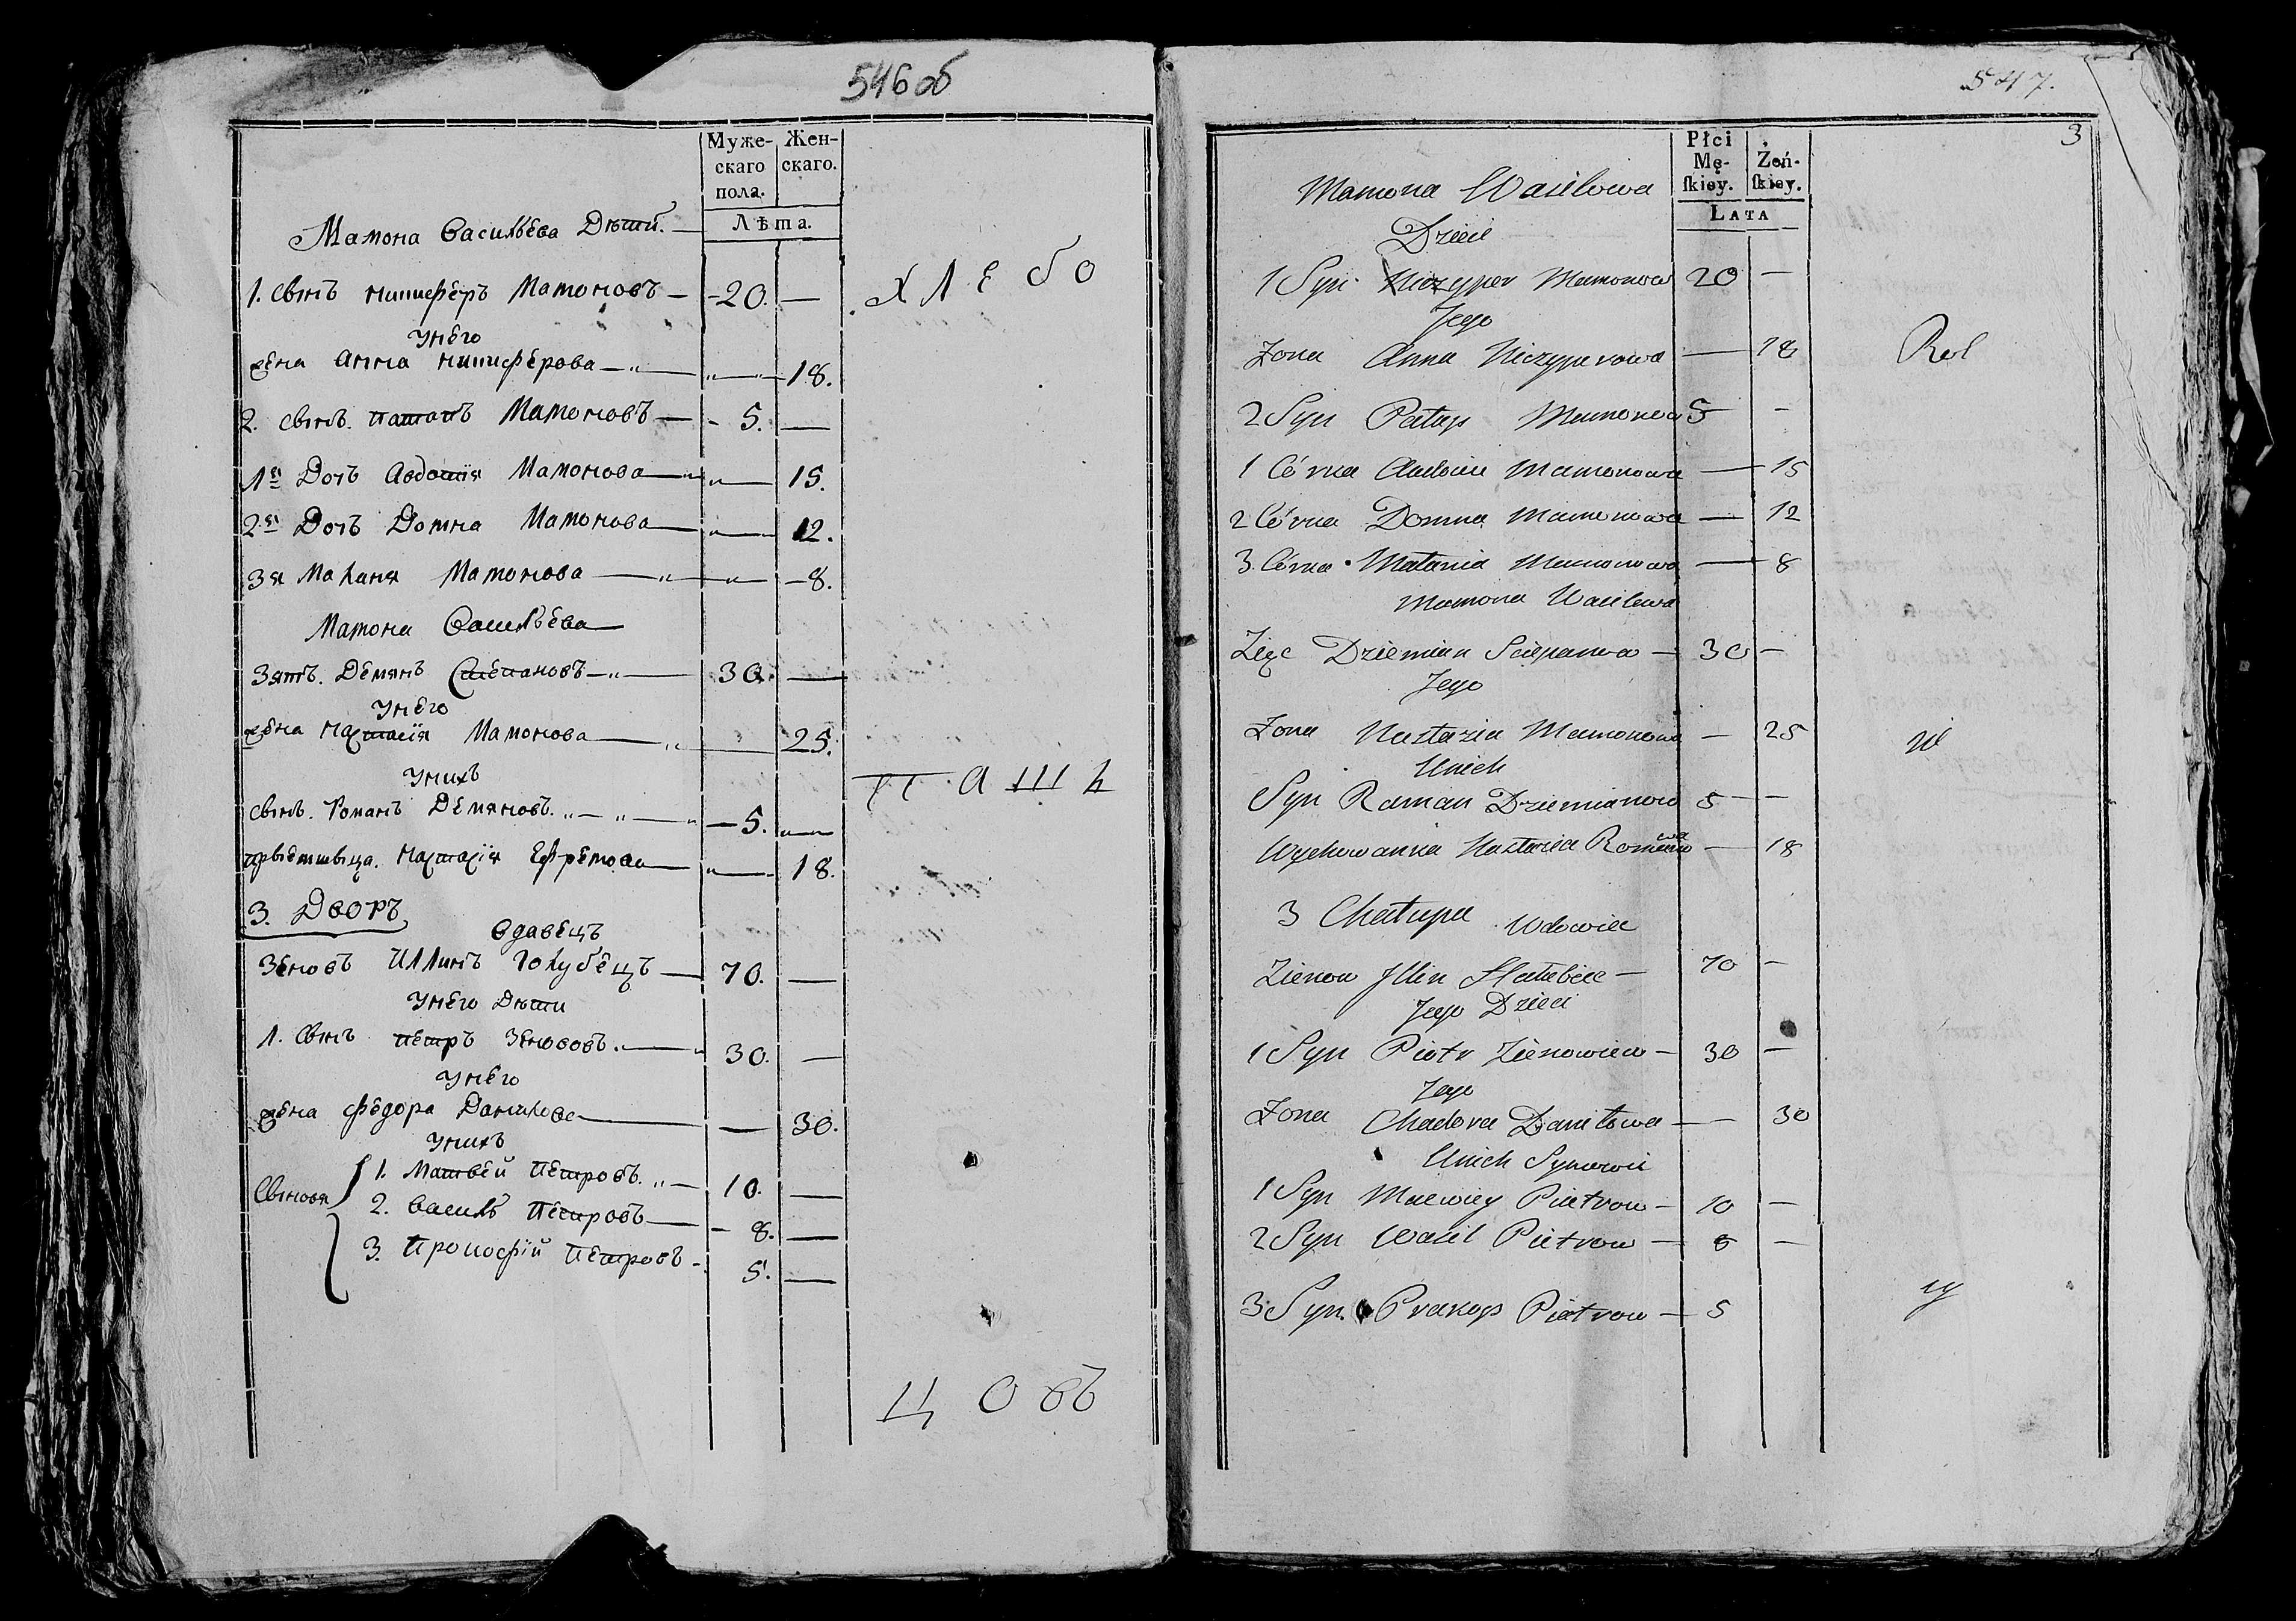 546 об
Муже-
скаго
пола.
Жен-
скаго.
Лѣта.
Мамона Васильева Дѣти.
1. Сынъ Ничиферъ Мамоновъ — 20. —
У него
жена Анна Ничиферова — 18.
2. сынъ. Патапъ Мамоновъ — 5. —
1я Дочь Авдотія Мамонова — 15.
2я Дочь Домна Мамонова — 12.
3я Маланя Мамонова — 8.
Мамона Васильева
Зять. Демянъ Степановъ — 30. —
У него
жена Настасія Мамонова — 25.
У нихъ
сынъ. Романъ Демяновъ. — 5. —
Настасія Ефремова — 18.
3. Дворъ
Вдавецъ
Зеновъ Иллинъ Голубецъ — 70. —
У него Дѣти
1. Сынъ Петръ Зенововъ. — 30. —
У него
жена Федора Данилова — 30.
У нихъ
Сыновя
1. Матвей Петровъ. — 10. —
2. Василь Петровъ — 8. —
3. Прокофій Петровъ — 5. —
ХЛЕБО
ПАШ
ЦОВЪ
547.
3
Płci
Mę-
ſkiey.
Żeń-
ſkiey.
Lata
Mamona Wasilowa
Dzieci
1 Syn Niczyper Mamonow 20 —
Jego
Zona Anna Niczyperowa — 18
2 Syn Patap Mamonow 5 —
1 Córka Audocia Mamonowa — 15
2 Córka Domna Mamonowa — 12
3 Córka Malania Mamonowa — 8
Mamona Wasilewa
Zięc Dziemian Sciepanow — 30 —
Jego
Zona Nastazia Mamonowa — 25
Unich
Syn Raman Dziemianow 5 —
Wychowanka Nastazia — 18
3 Chałupa Wdowiec
Zienow Jllin Hałubiec — 70 —
Jego Dzieci
1 Syn Piotr Zienowiew — 30 —
Jego
Zona Chadora Daniłowa — 30
Unich Synowie
1 Syn Maciey Piatrow — 10 —
2 Syn Wasil Pietrow — 8 —
3 Syn. Prakop Piatrow — 5
Rol
ni
cy